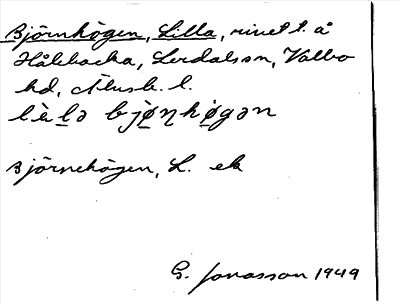 Björnhögen, Lilla, rivet t. å
Hålebacka, Lerdalssn, Valbo
hd, Älvsb. l.
lɩ̀lə bjø̣ɳhø̣gən
Björnehögen, L. ek
G. Jonasson 1949